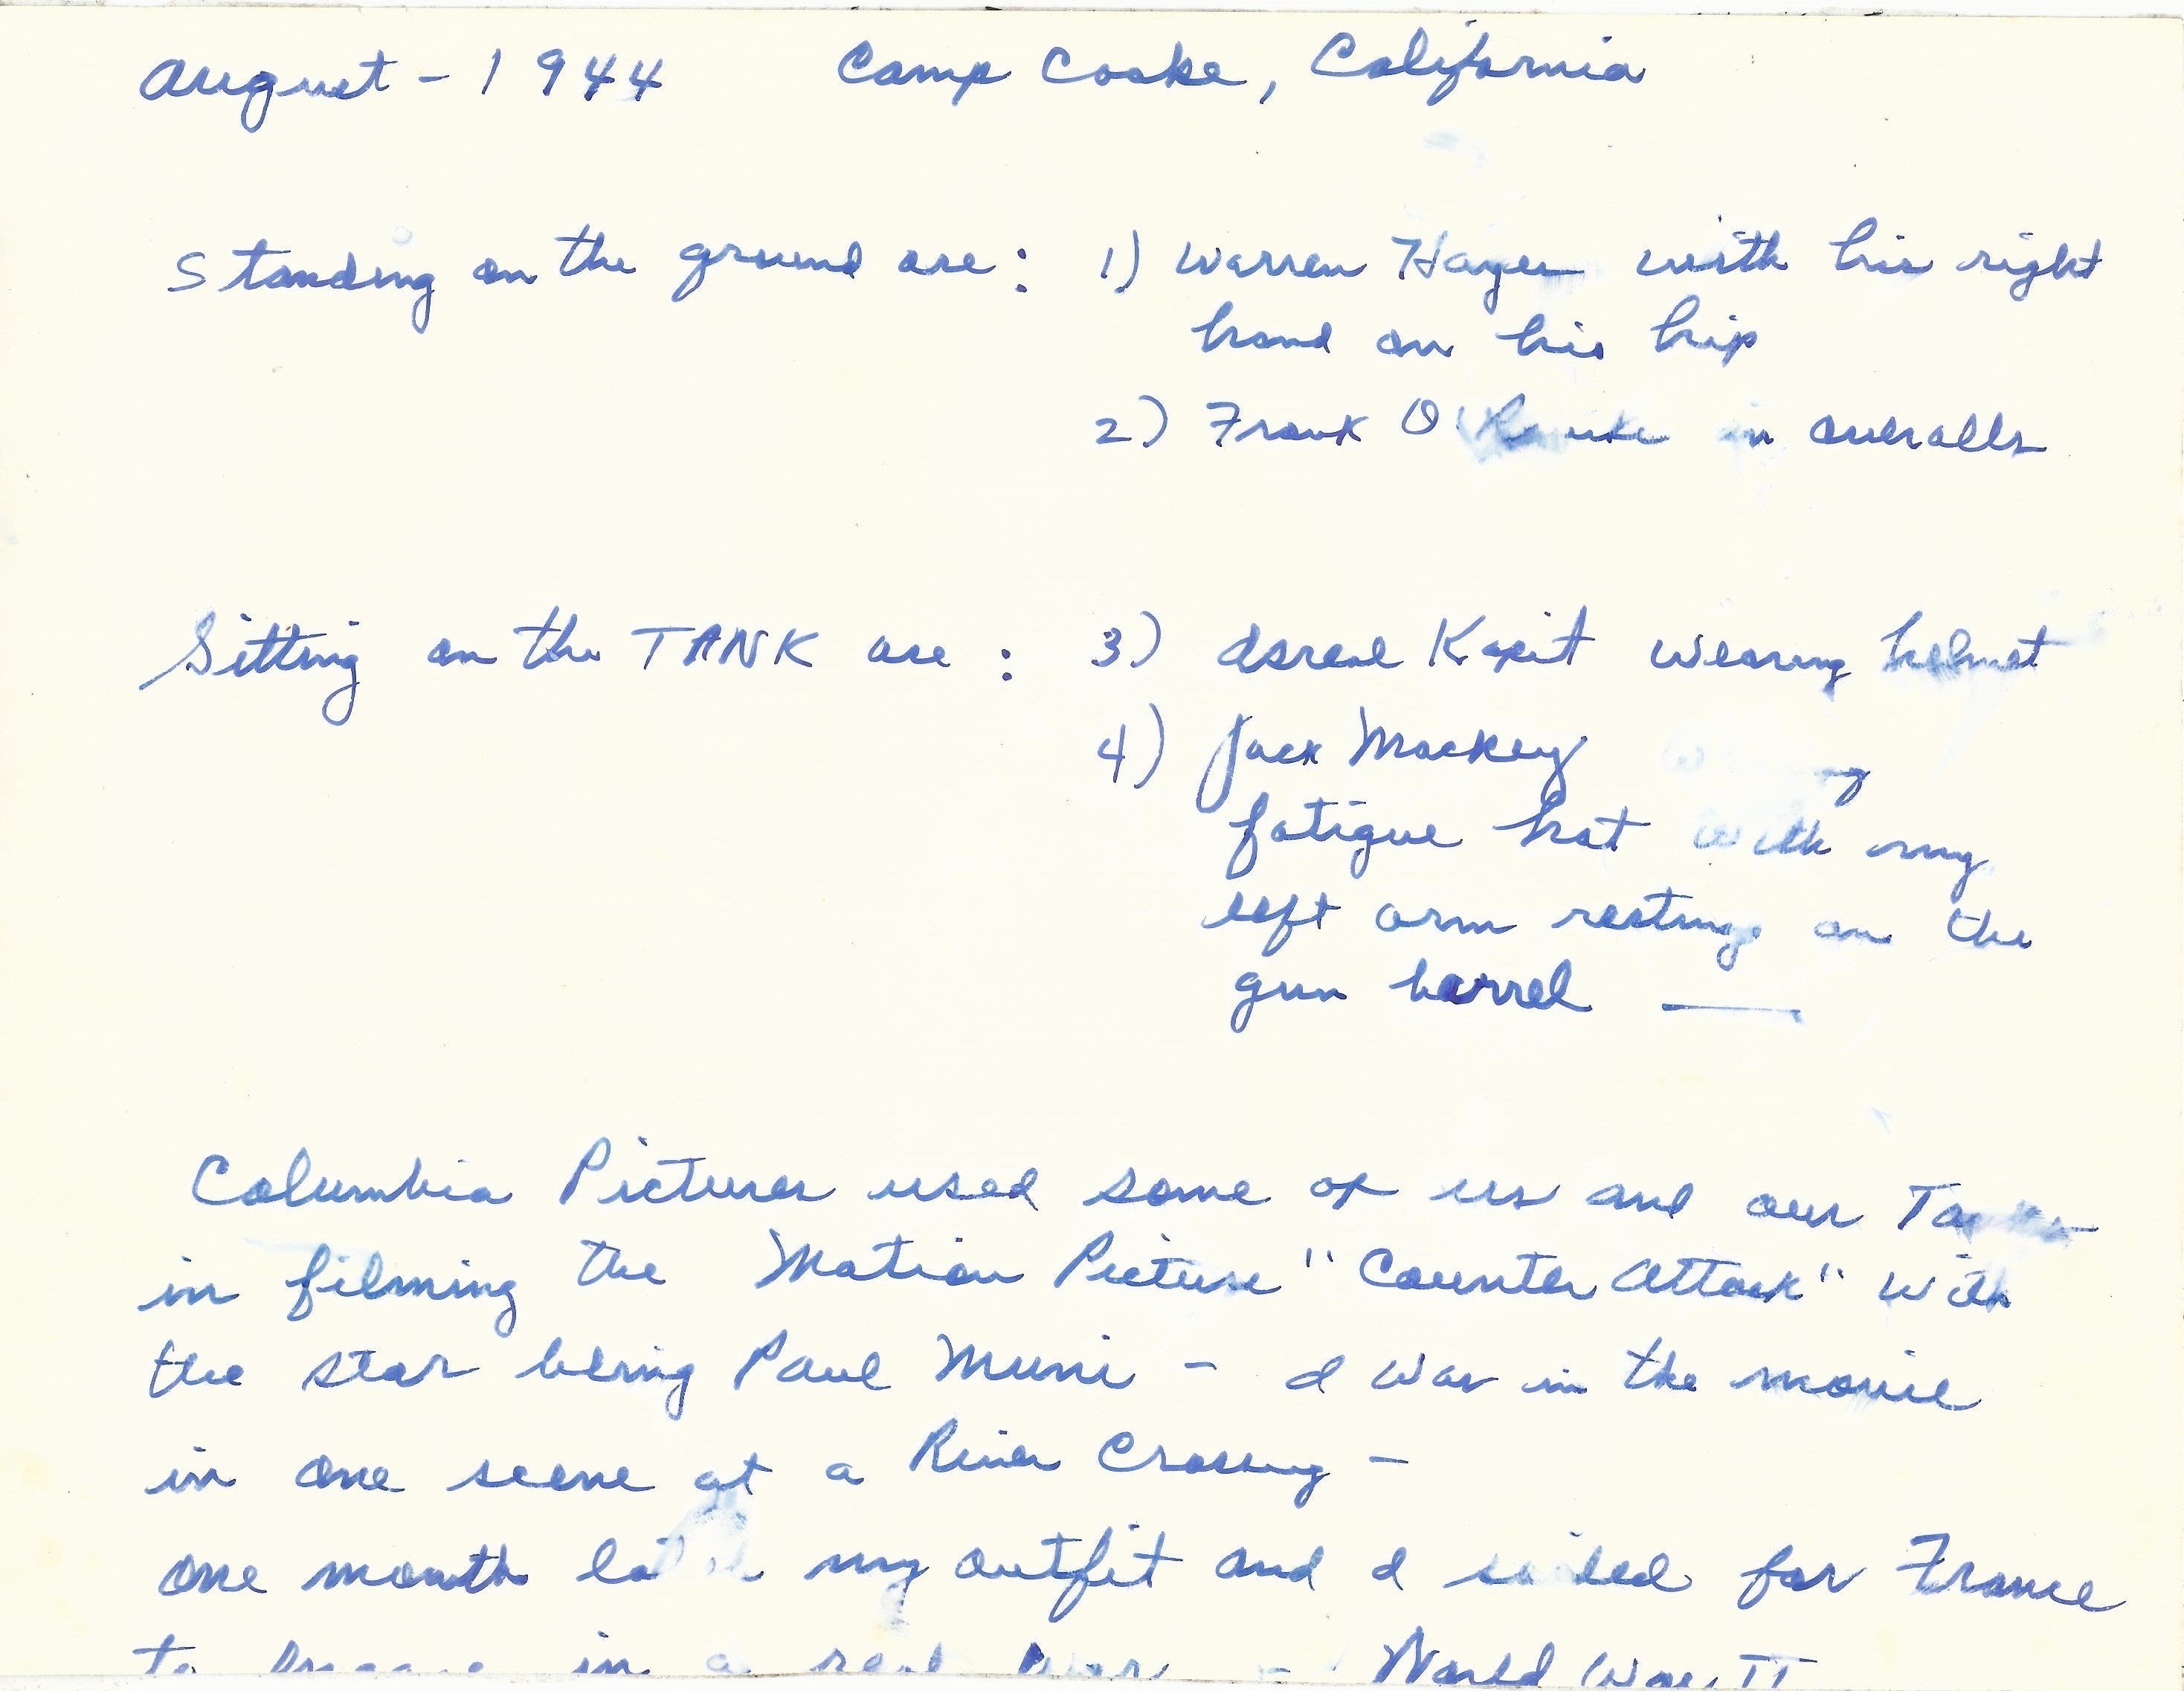 August - 1944 Camp Cooke, California
Standing on the ground are: 1) Warren Hayes with his right
hand on his hip
2) Frank in overalls
Sitting on the TANK are: 3) Israel Kapit wearing helmet
4) Jack Mackey
fatigue hat with my
left arm resting on the
gun barrel —
Columbia Pictures used some of us and our Tanks
in filming the Motion Picture "Counter Attack" with
the star being Paul Muni - I was in the movie
in one scene at a River Crossing -
one month later my outfit and I sailed for France
to in a real war - World War II